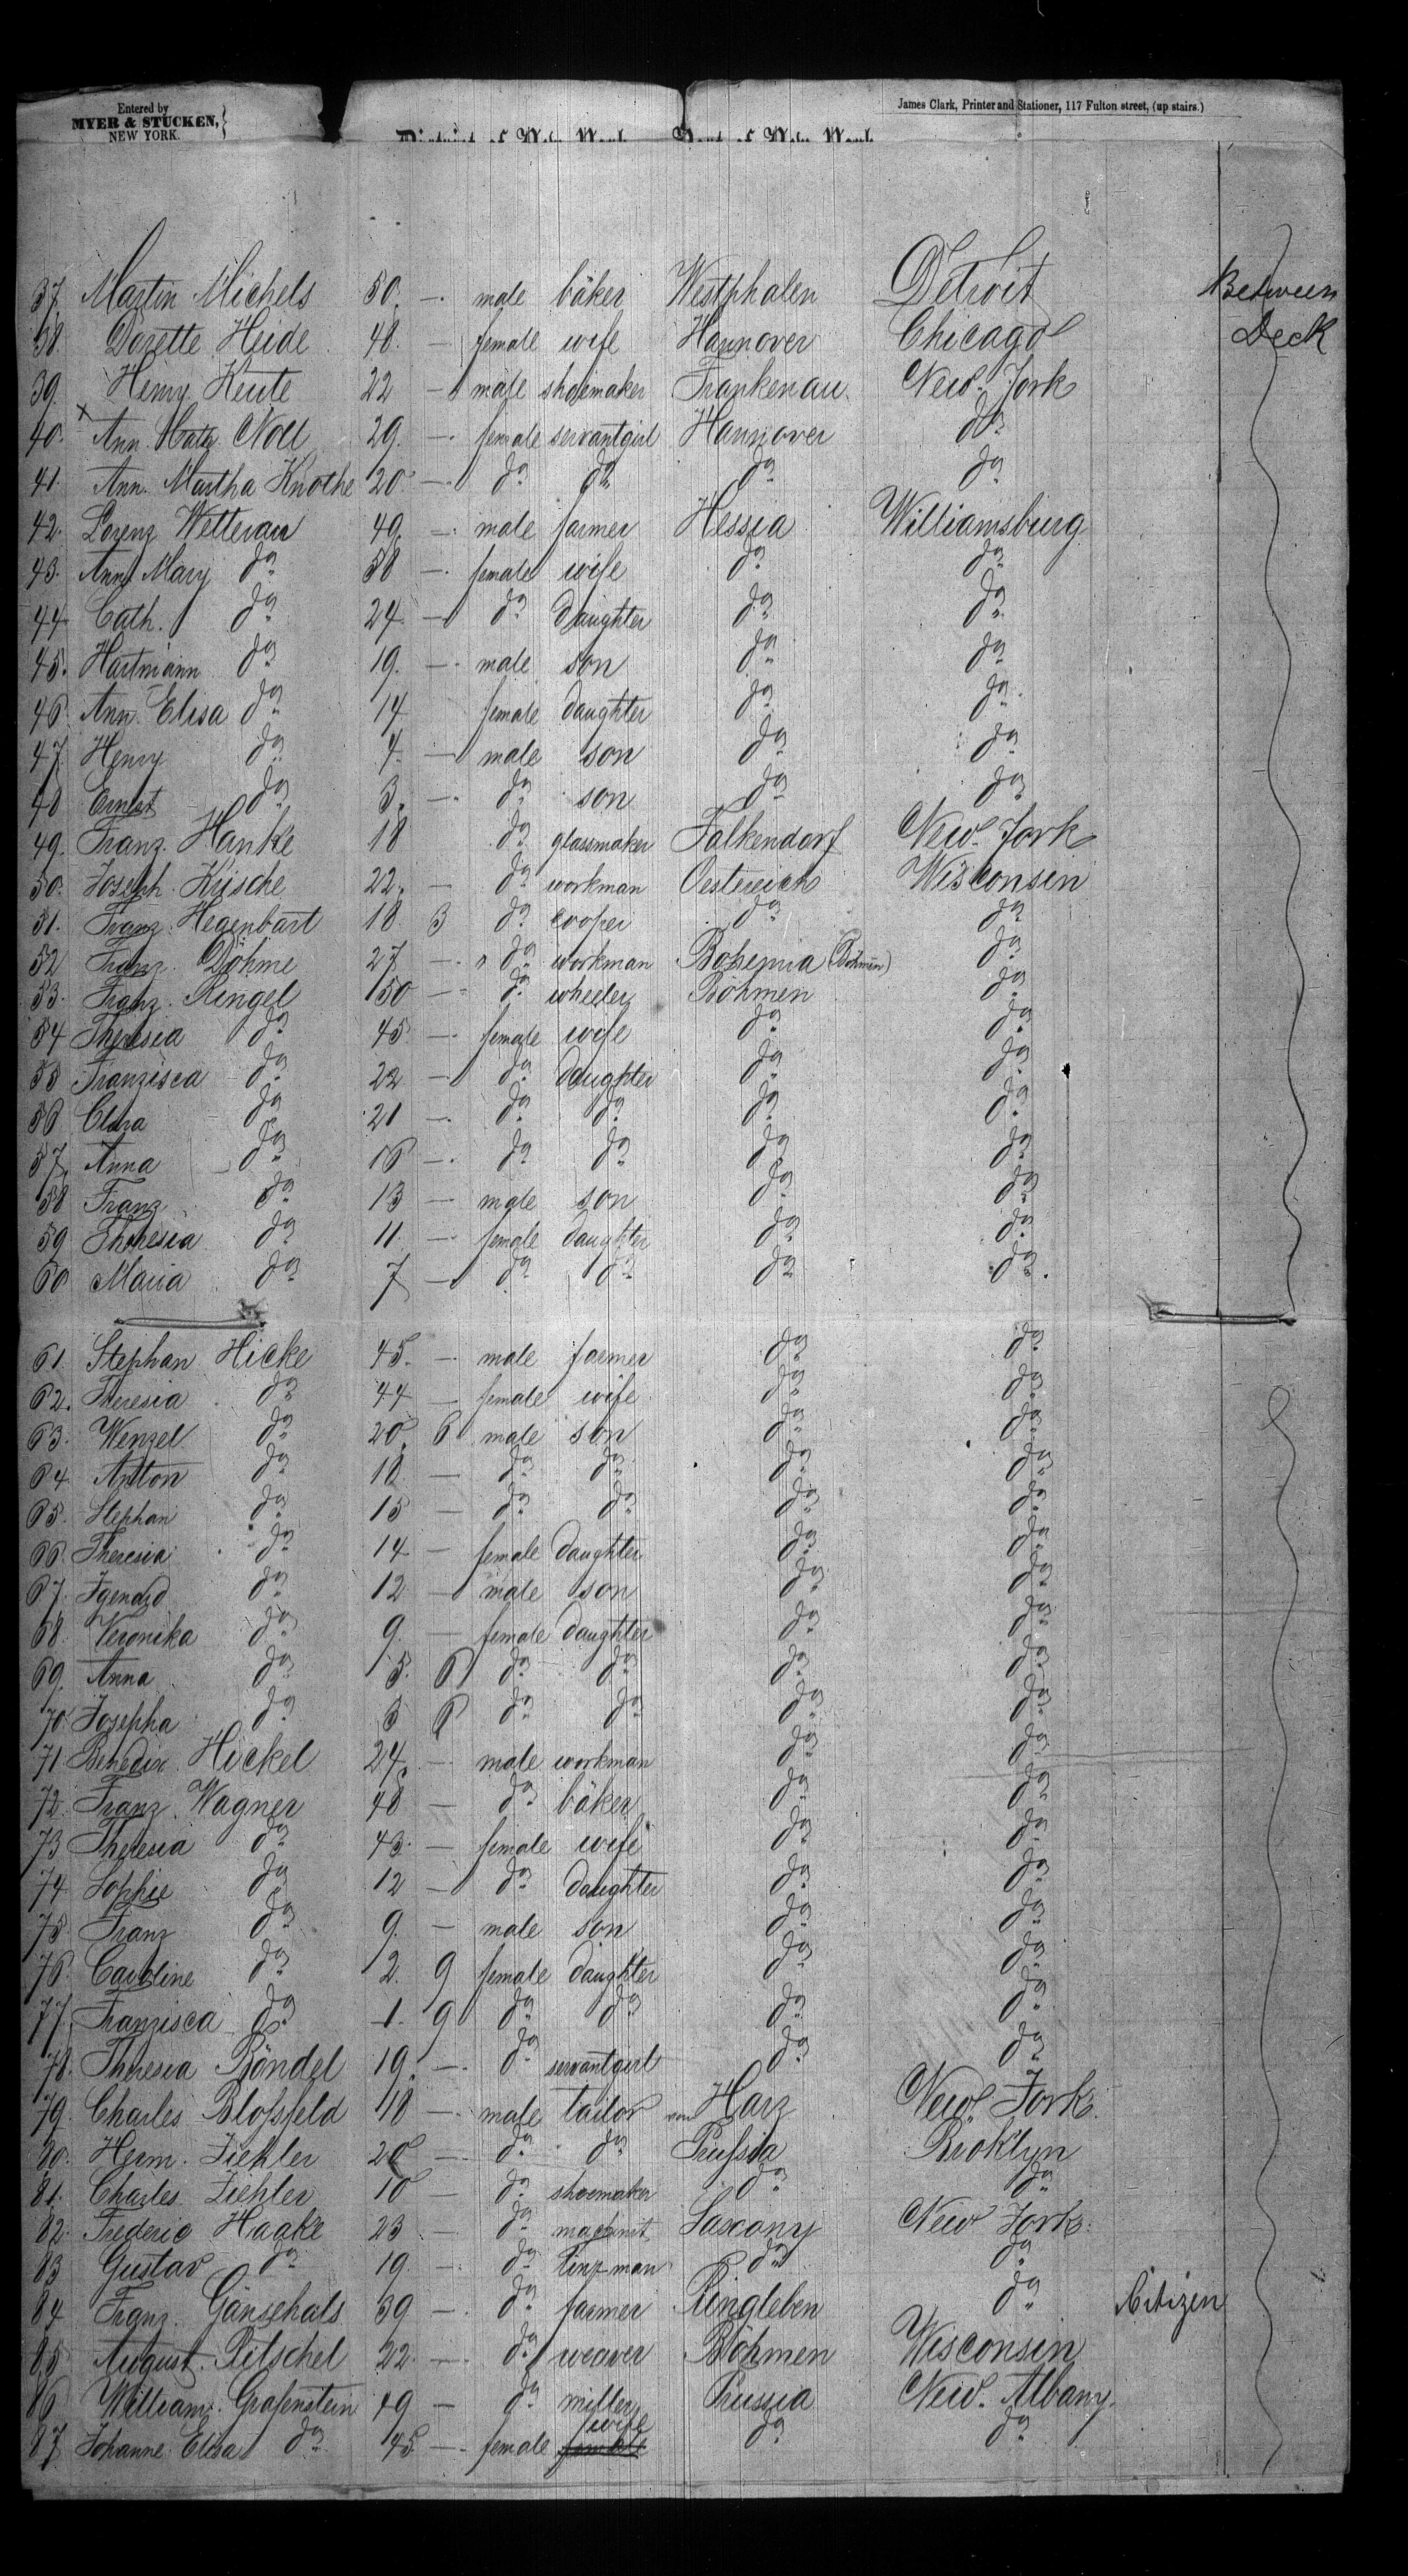 Entered by
MYER & STUCKEN,
NEW YORK.
James Clark, Printer and Stationer, 117 Fulton street, (up stairs.)
District of New York Port of New York
37. Martin Michels 50. — male bäker Westphalen Detroit Between
38. Dorette Heide 48. — female wife Hannover Chicago Deck
39. Henry Keute 22 — male shoemaker Frankenau New-York
40. Ann. Cath. Noll 29. — female servantgirl Hannover do
41. Ann. Martha Knothe 20 — do do do do
42. Lorenz Wetterau 49. — male farmer Hessia Williamsburg
43. Ann Mary do 58 — female wife do do
44 Cath. do 24. — do daughter do do
45. Hartmann do 19. — male son do do
46 Ann. Elisa do 14 female daughter do do
47 Henry do 4. — male son do do
48 Ernest do 3. — do son do do
49. Franz Hanke 18 do glassmaker Falkendorf New-York
50. Joseph Krische 22. — do workman Oestereich Wisconsin
51. Franz Hegenbart 18 3 do cooper do do
52 Franz Döhme 27 — do workman Bohemia (Böhmen) do
53. Franz Ringel 50 — do wheeler Böhmen do
54 Theresia do 45 — female wife do do
55 Franzisca do 22 — do daughter do do
56 Clara do 21 — do do do do
57. Anna do 16 — do do do do
58 Franz do 13 — male son do do
59 Theresia do 11. — female daughter do do
60 Maria do 7 — do do do do
61. Stephan Hicke 45. — male farmer do do
62. Theresia do 44 — female wife do do
63. Wenzel do 20. 6 male son do do
64 Anton do 18 — do do do do
65. Stephan do 15 — do do do do
66. Theresia do 14 — female daughter do do
67. do 12 — male son do do
68. Veronika do 9. — female daughter do do
69. Anna do 5. 6 do do do do
70 Josepha do 3 6 do do do do
71 Benedix Hickel 24. — male workman do do
72. Franz Wagner 48 — do bäker do do
73 Theresia do 43. — female wife do do
74 Sophie do 12 — do daughter do do
75 Franz do 9. — male son do do
76. Caroline do 2. 9 female daughter do do
77. Franzisca do 1. 9 do do do do
78. Theresia Böndel 19. — do servantgirl do do
79. Charles Bloßfeld 18 — male tailor von Harz New-York.
80. Herm. Ziehler 20 — do do Prußia Broklyn
81. Charles Ziehler 18 — do shoemaker do do
82. Frederic Haake 23 — do Saxony New York.
83 Gustav do 19. — do do do
84 Franz Gänsehals 39 — do farmer Ringleben do Citizen
85 August Pitschel 22. — do weaver Böhmen Wisconsin
86 William Grafenstein 49 — do miller Prussia New-Albany.
87. Johanne Elisa do 45. — female wife do do